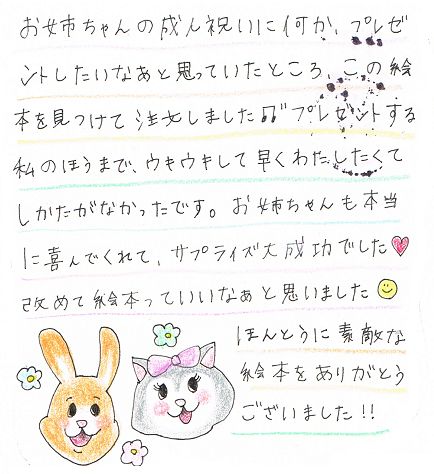 お姉ちゃんの成人祝いに何か、プレゼ
ントしたいなあと思っていたところ、この絵
本を見つけて注文しました♫"プレゼントする
私のほうまで、ウキウキして早くわたしたくて
しかたがなかったです。お姉ちゃんも本当
に喜んでくれて、サプライズ大成功でした♥
改めて絵本っていいなぁと思いました☺
ほんとうに素敵な
絵本をありがとう
ございました!!